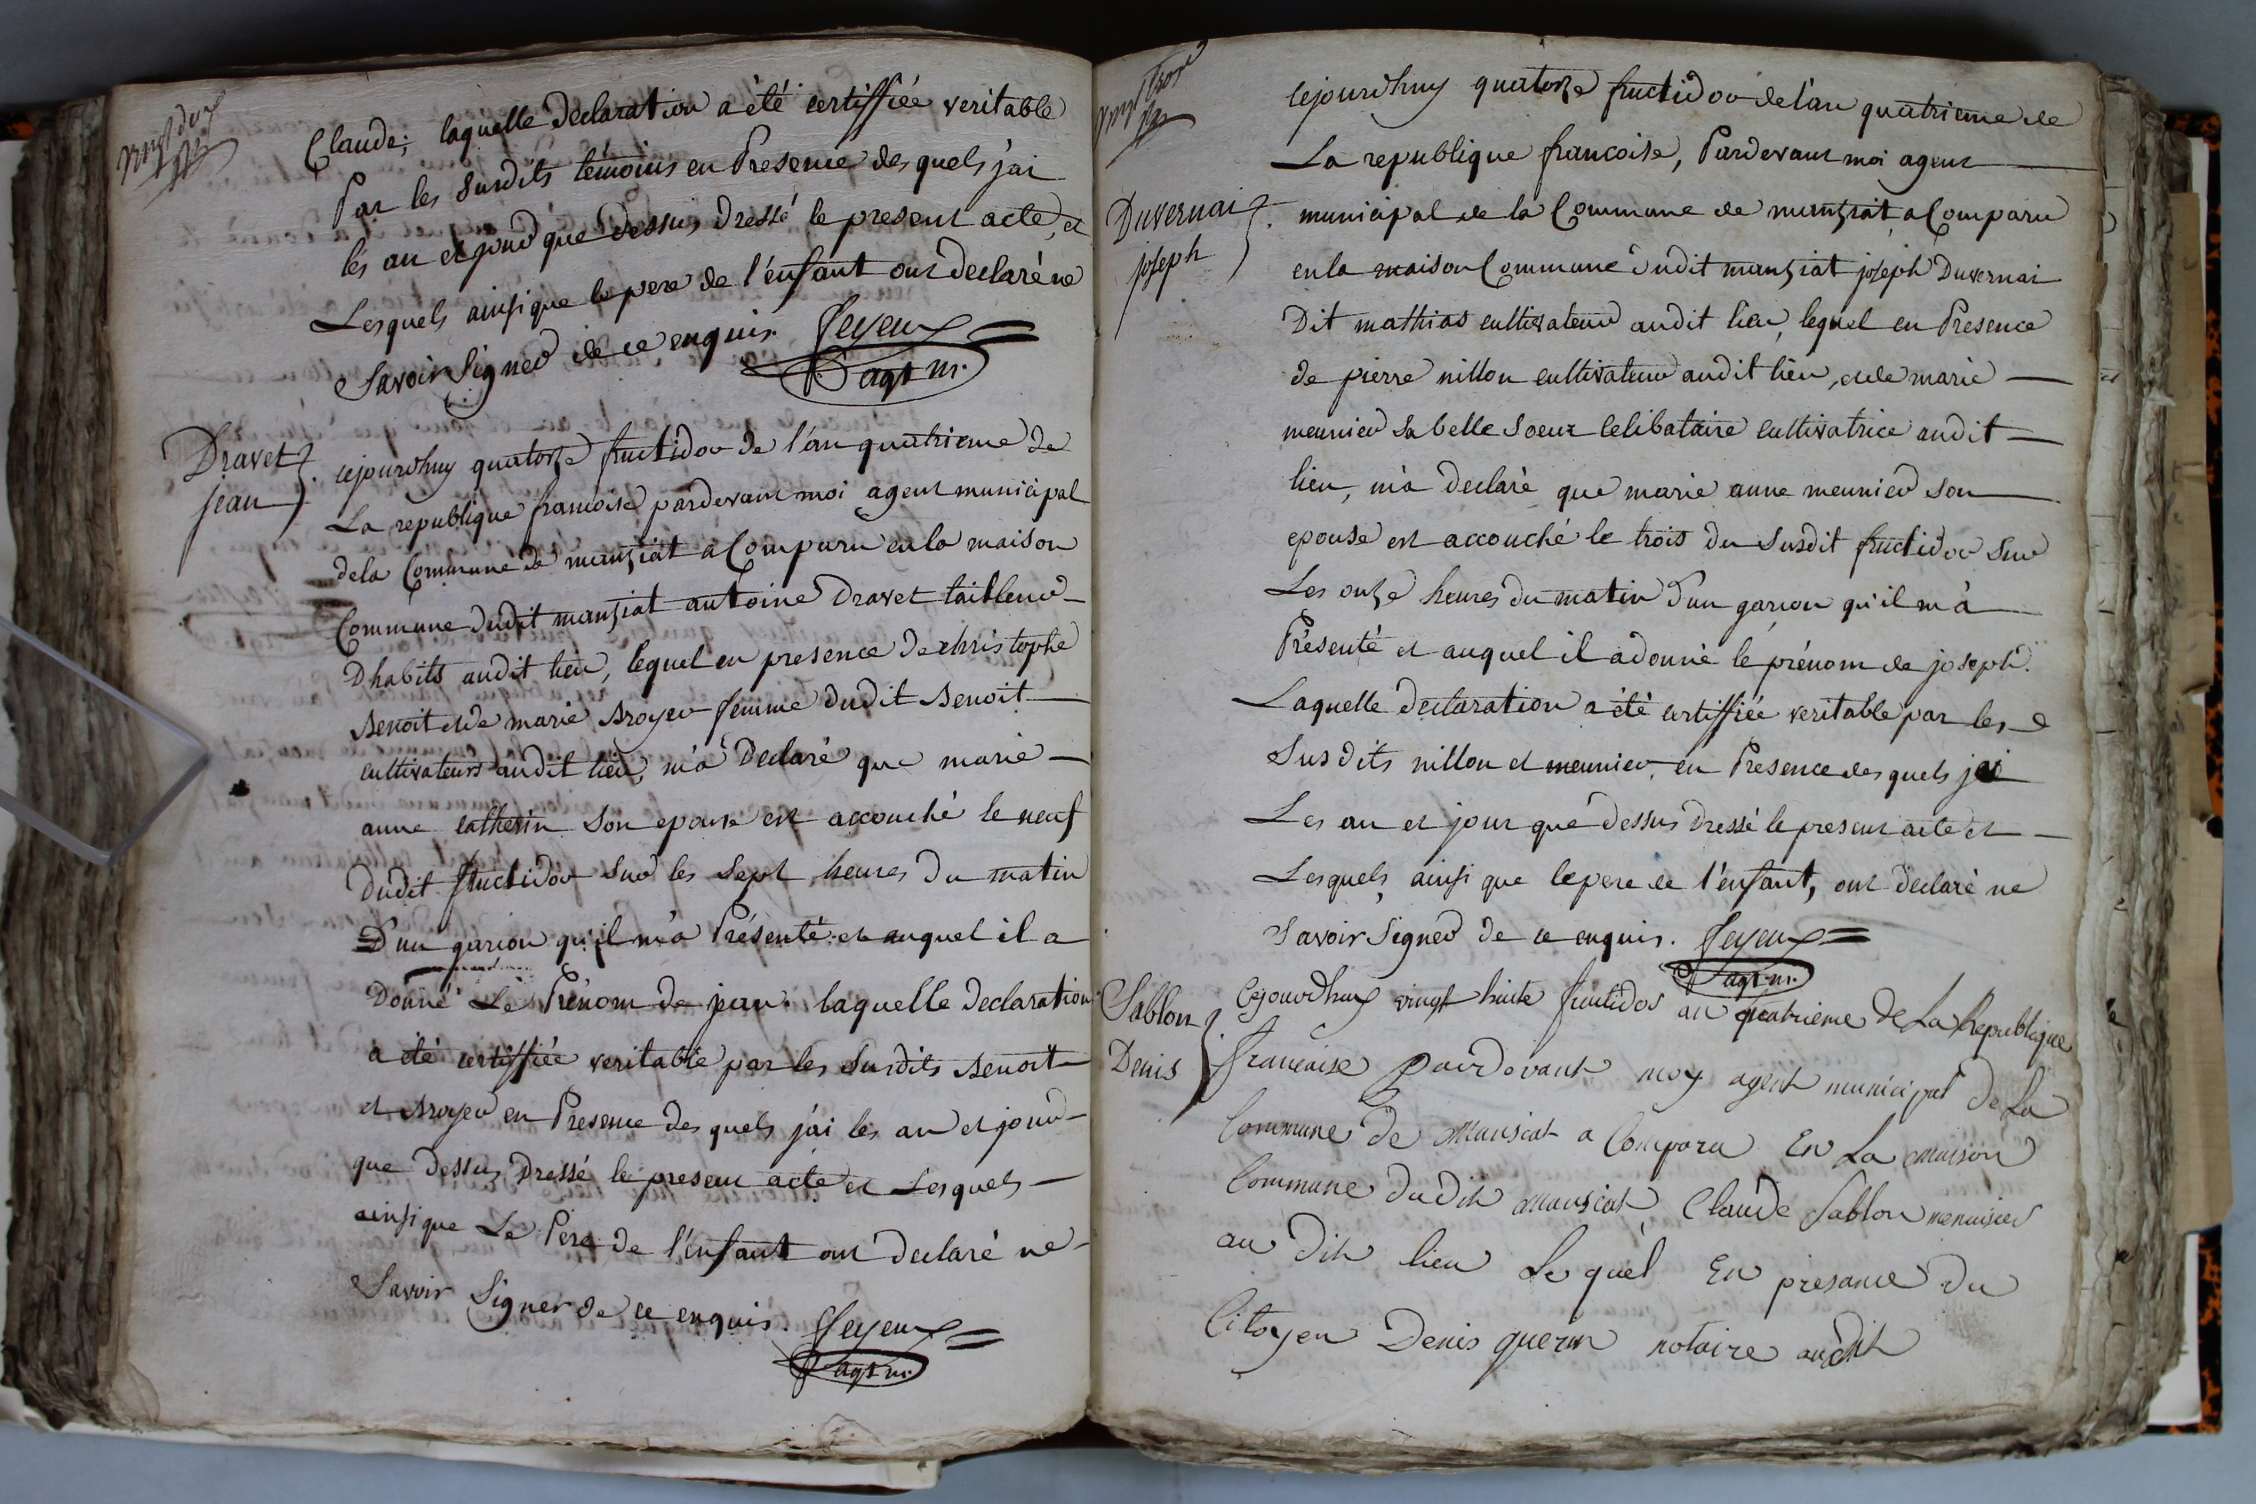 vingt deux
Claude; laquelle declaration a été certiffiée veritable
Par les susdits témoins en Presence des quels j'ai
les an et jour que dessus dressé le present acte, et
Lesquels ainsi que le pere de l'enfant ont declaré ne
Savoir Signer de ce enquis. Feyeux
agt m.
Dravet
jean
cejourdhuy quatorze fructidor de l'an quatrieme de
La republique francoise pardevant moi agent municipal
de la Commune de manziat a Comparu en la maison
Commune dudit manziat antoine Dravet tailleur
Dhabits audit lieu, lequel en presence de christophe
Benoit et de marie Broyer femme dudit Benoit
cultivateurs audit lieu, m'a Declaré que marie
anne catherin son epouse est accouché le neuf
dudit fructidor sur les sept heures du matin
D'un garcon qu'il m'a Présenté et auquel il a
Donné Le Prénom de jean. laquelle declaration
a été certiffiée veritable par les susdits Benoit
et Broyer en Presence des quels j'ai les an et jour
que dessus dressé le present acte et Lesquels
ainsi que Le Pere de l'enfant ont declaré ne
Savoir Signer de ce enquis. Feyeux
agt m.
vingt trois
Duvernai
joseph
cejourdhuy quatorze fructidor de l'an quatrieme de
La republique francoise, Pardevant moi agent
municipal de la Commune de manziat, a Comparu
en la maison Commune dudit manziat joseph Duvernai
Dit mathias cultivateur audit lieu, lequel en Presence
de pierre nillon cultivateur audit lieu, et de marie
meunier sa belle soeur celibataire cultivatrice audit
lieu, m'a declaré que marie anne meunier son
epouse est accouché le trois du susdit fructidor sur
Les onze heures du matin d'un garcon qu'il m'a
Présenté et auquel il a donné le prénom de joseph.
Laquelle declaration a été certiffiée veritable par les
susdits nillon et meunier, en Presence des quels j'ai
Les an et jour que dessus dressé le present acte et
Lesquels, ainsi que le pere de l'enfant, ont declaré ne
Savoir Signer de ce enquis. Feyeux
agt m.
Sablon
Denis
Cejourdhuy vingt huite fructidor an quatrieme de La Republique
francaise pardevant moy agent municipal de La
Commune de Mansiat a Comparu En La maison
Commune dudit Mansiat Claude Sablon menuisier
au dit lieu Le quel En presance du
Citoyen Denis querin notaire audit